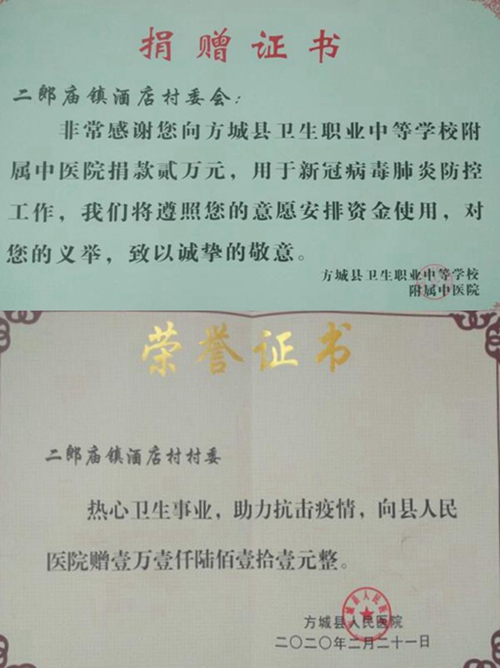 捐赠证书
二郎庙镇酒店村委会：
非常感谢您向方城县卫生职业中等学校附
属中医院捐款贰万元，用于新冠病毒肺炎防控
工作，我们将遵照您的意愿安排资金使用，对
您的义举，致以诚挚的敬意。
方城县卫生职业中等学校
附属中医院
荣誉证书
二郎庙镇酒店村村委
热心卫生事业，助力抗击疫情，向县人民
医院赠壹万壹仟陆佰壹拾壹元整。
方城县人民医院
二〇二〇年二月二十一日